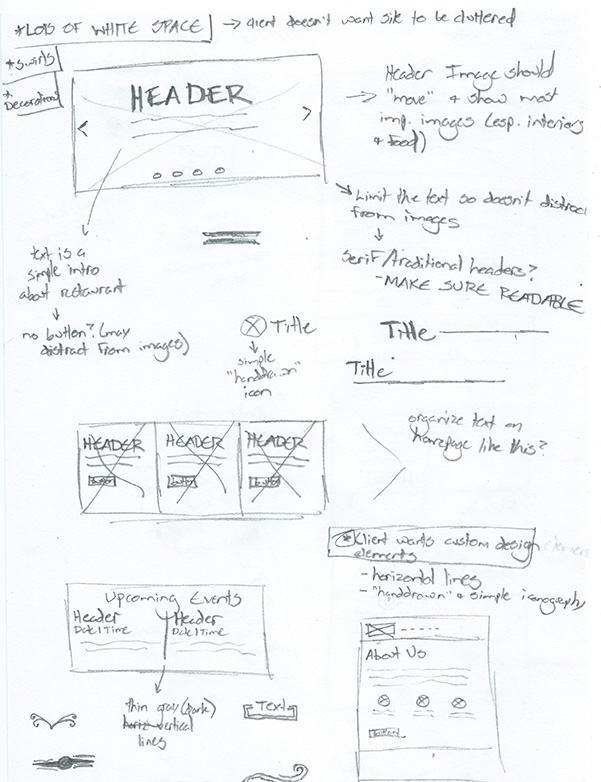 *LOTS OF WHITE SPACE → client doesn't want site to be cluttered
*Swirls
*Decorations
HEADER
Header Image should
"move" & show most
imp. images (esp. interiors
& food)
Limit the text so doesn't distract
from images
serif/traditional headers?
-MAKE SURE READABLE
text is a
simple intro
about restaurant
no button? (may
distract from images)
Title
simple
"handdrawn"
icon
Title
Title
HEADER HEADER HEADER
button button button
organize text on
homepage like this?
*Client wants custom design
elements
- horizontal lines
- "handdrawn" & simple iconography
Upcoming Events
Header Header
Date|Time Date|Time
thin gray (dark)
horiz vertical
lines
Text
About Us
button